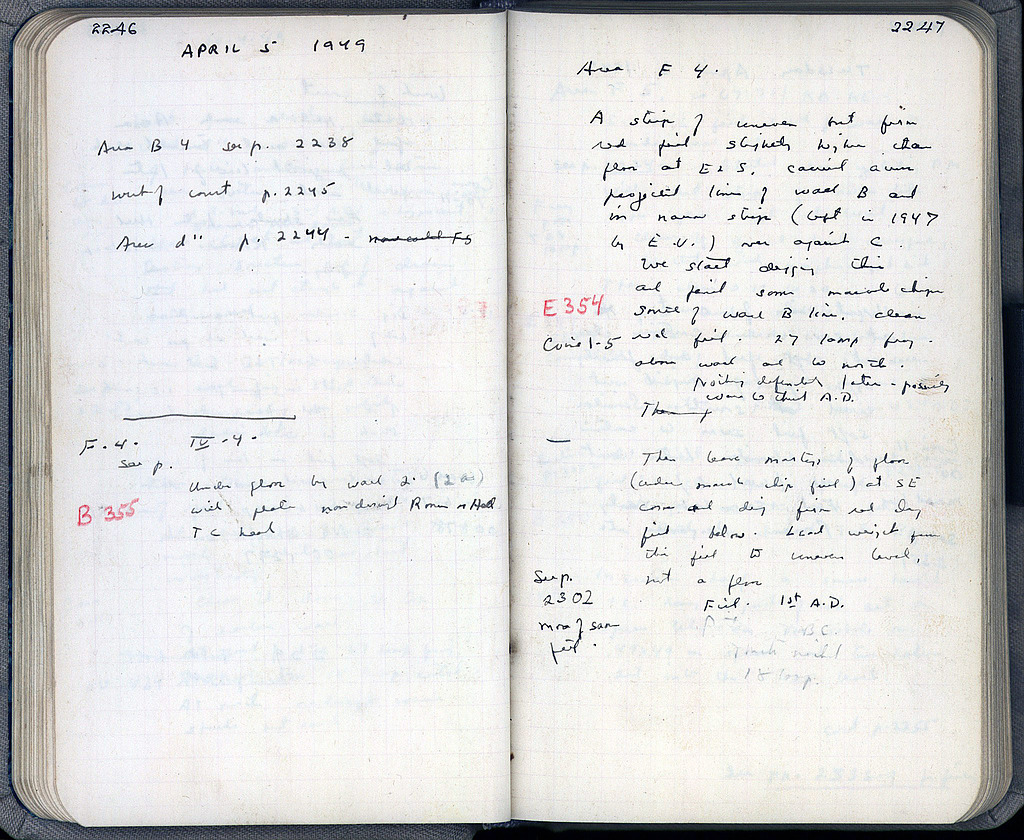 2246
APRIL 5 1949
Area B 4 see p. 2238
west of court p. 2245
Area d" p. 2244 -
F. 4. IV - 4 -
see p.
under floor by wall 2.
B 355
with plate Roman
T C head
2247
Area F 4.
A strip of uneven but firm
red fill slightly higher than
floor at E & S. carried over
projected line of wall B and
in narrow strip (left in 1947
by E.V.) over against C.
We start digging this
and find some marble chips
E 354
south of wall B line, clean
Coins 1-5
red fill. 27 lamp frag.
above wall and to north.
Nothing definitely later - possibly
were to third A.D.
Then
Then leave mortar of floor
(under marble chip fill) at SE
corner and dig firm red dry
fill below. Lead weight from
this fill to uneven level,
See p.
not a floor
2302
Fill. 1st A.D.
more of same
B.C.
fill.
18 lamp.